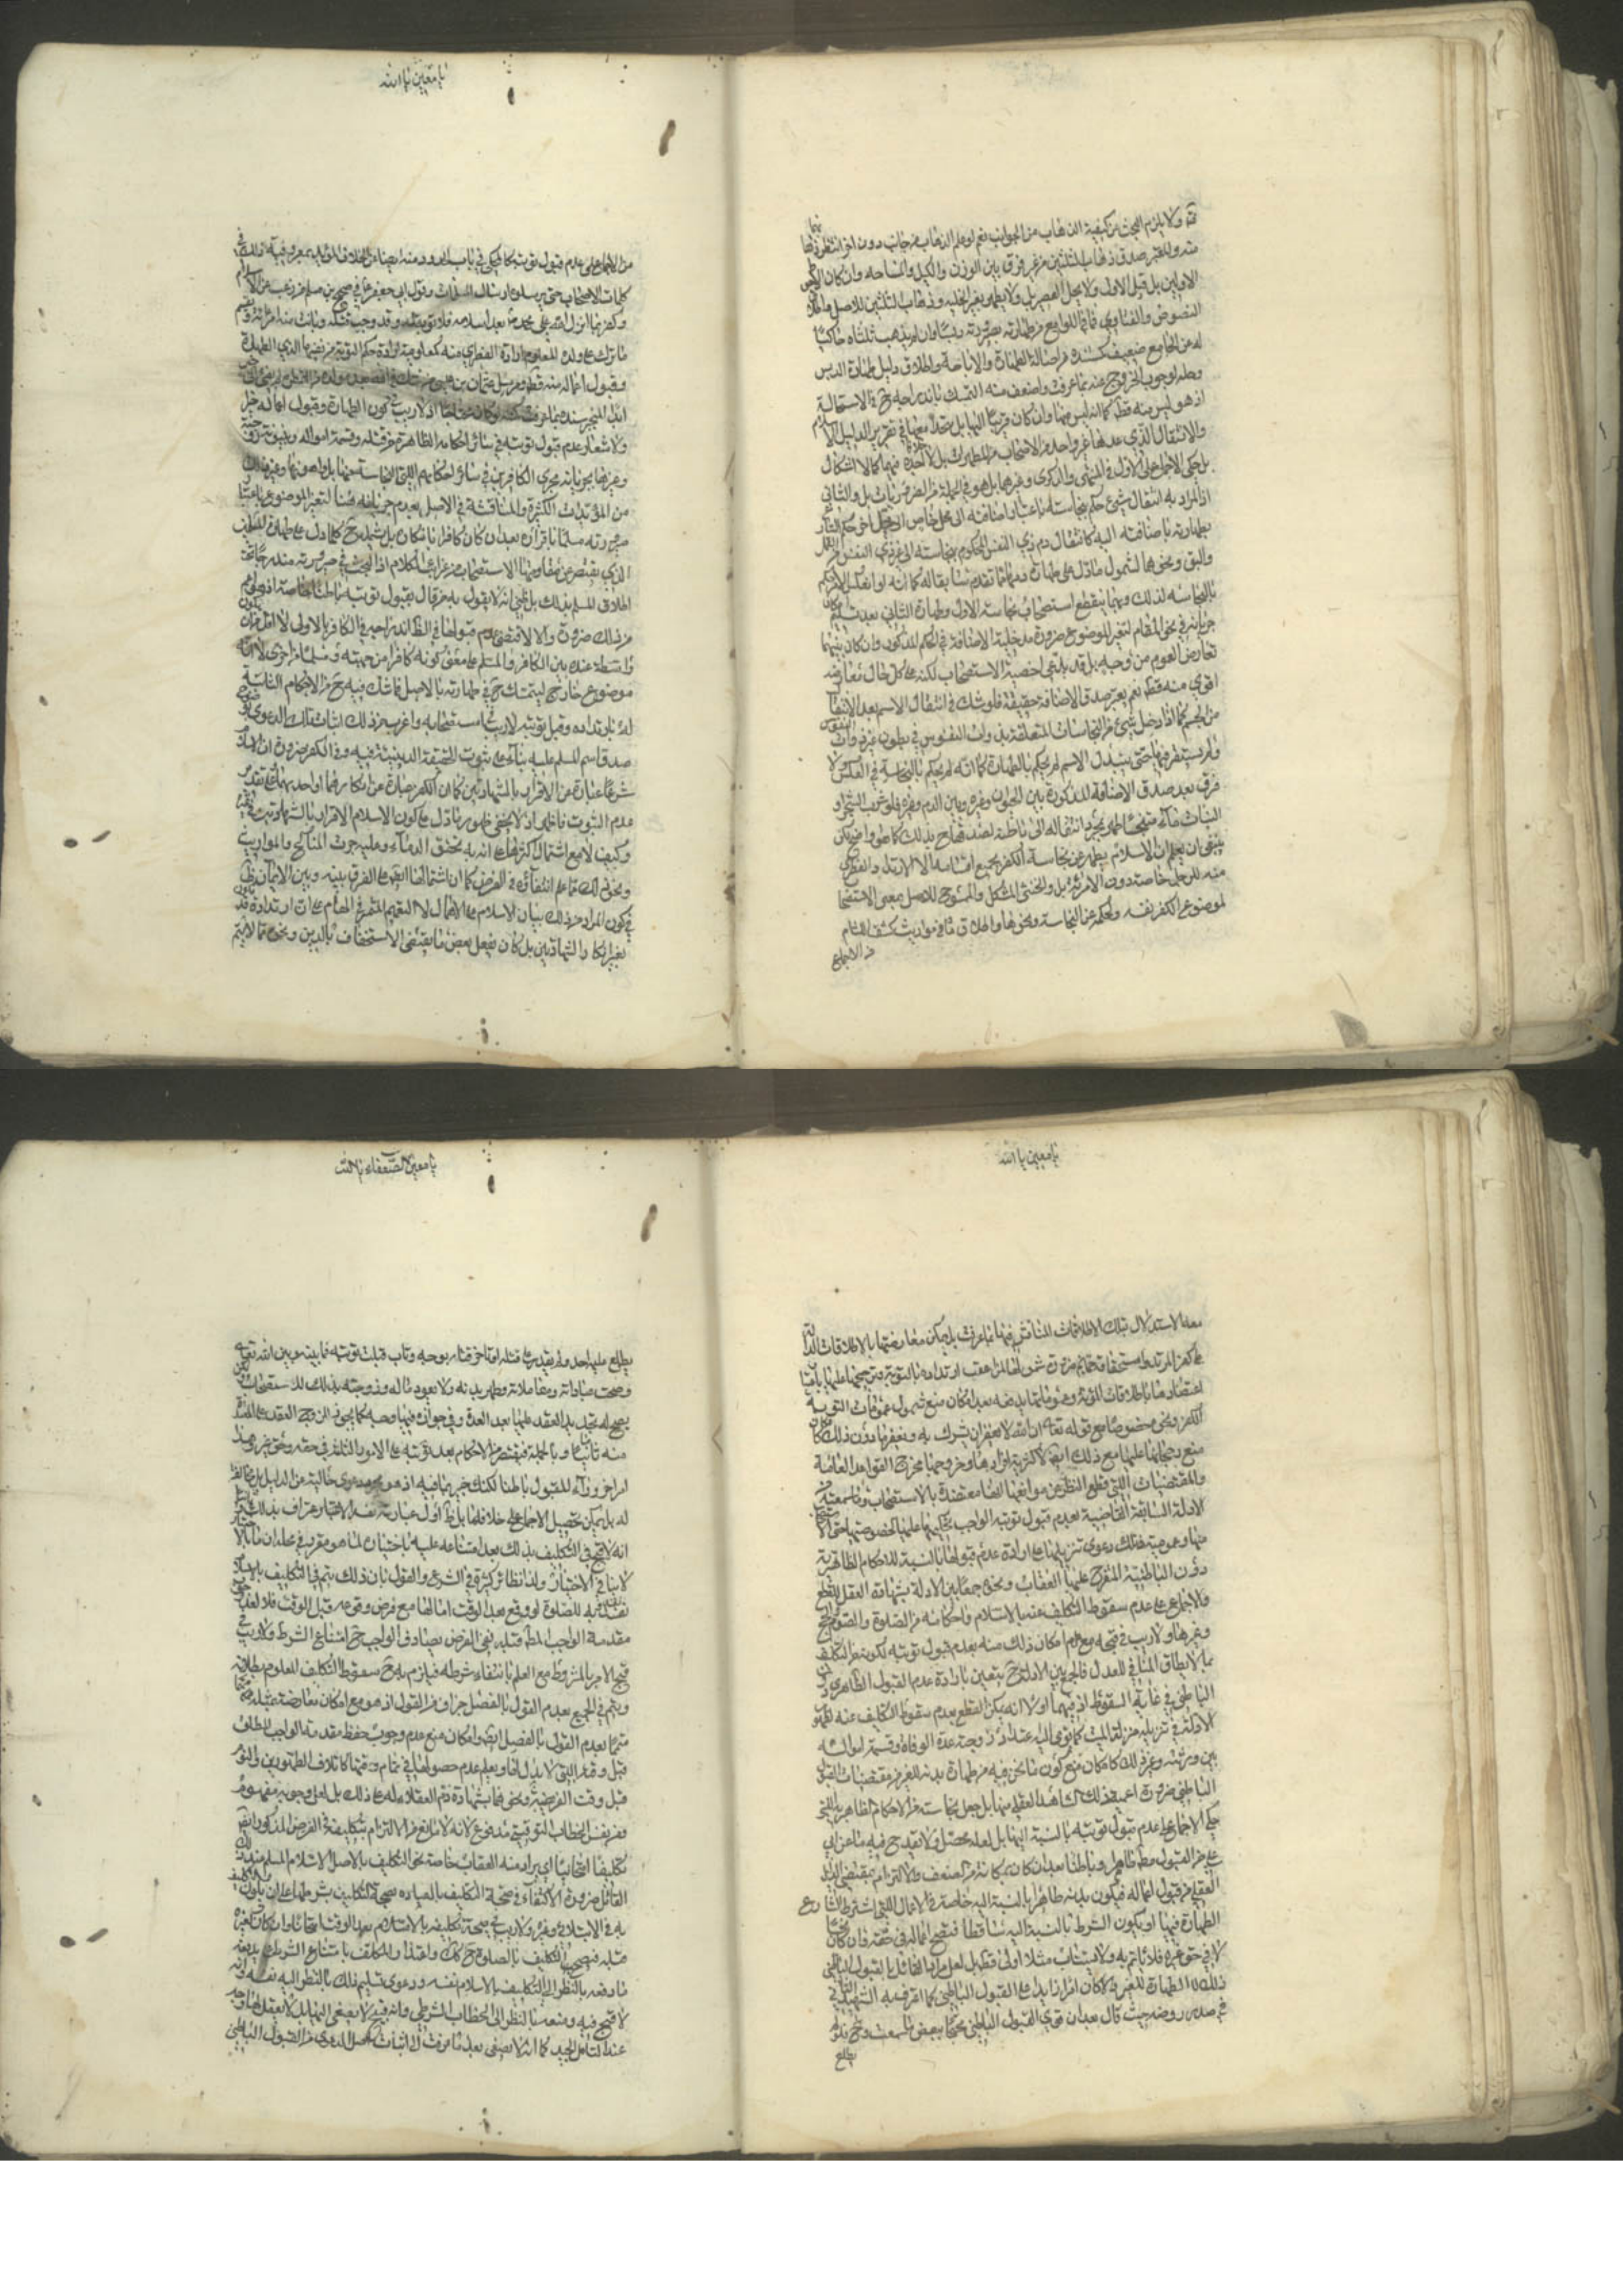 منه ولا يلزم البحث عن كيفية الذهاب من الجوانب نعم لو علم الذهاب من جانب دون اخر
منه والمعتبر صدق ذهاب الثلثين من غير فرق بين الوزن والكيل والمساحة وان كان
الاولين بل قيل الاول ولا يحل العصير بل ولا يطهر بغير الخلية وذهاب الثلثين للاصل
النصوص والفتاوى فما في اللوامع من طهارته بصيرورته دبسا وان لم يذهب ثلثاه حاكيا
له عن الجامع ضعيف كسنده من اصالة الطهارة والاباحة واطلاق دليل طهارة الدبس
وحله لوجوب الخروج عنه بما عرفت واضعف منه التمسك باندراجه ح في الاستحالة
اذ هو ليس منه قطعا كما انه ليس منها وان كان قريبا اليها بل متحدا معها في تقرير الدليل
والانتقال الذي عده غير واحد من الاصحاب من المطهرات بل لا اجد فيه خلافا كما لا اشكال
بل حكى الاجماع على الاول في المنتهى والذكرى وغيرهما بل هو في الجملة من الضروريات بل والثاني
اذ المراد به انتقال شيء حكم بنجاسته باعتبار اضافته الى محل خاص الى محل اخر حكم الشارع
بطهارته باضافته اليه كانتقال دم ذي النفس المحكوم بنجاسته الى غير ذي النفس من القمل
والبق ونحوهما لشمول ما دل على طهارة دمهما مما تقدم سابقا له كما انه لو انعكس الامر حكم
بالنجاسة لذلك وبهما ينقطع استصحاب نجاسة الاول وطهارة الثاني بعد تسليم
جريانه في نحو المقام لتغير الموضوع ضرورة مدخلية الاضافة في الحكم المذكور وان كان بينهما
تعارض العموم من وجه بل قد يدعى اخصية الاستصحاب لكنه على كل حال تعارض
اقوى منه قطعا نعم يعتبر صدق الاضافة حقيقة فلو شك في انتقال الاسم بعد الانتقال
من الجسم كما اذا دخل شيء من النجاسات المتعلقة بذوات النفوس في بطون غير ذوات النفوس
ولم يستقر فيها حتى يتبدل الاسم لم يحكم بالطهارة كما انه لم يحكم بالنجاسة في العكس ولا
فرق بعد صدق الاضافة المذكورة بين الحيوان وغيره وبين الدم وغيره فلو شرب الشجر او
النبات ماء متنجسا طهر بمجرد انتقاله الى باطنه لصدق
ينبغي ان يعلم ان الاسلام يطهر عن نجاسة الكفر بجميع اقسامه الا الارتداد الفطري
منه للرجل خاصة دون الامرئة بل والخنثى المشكل والممسوح للاصل بمعنى الاستصحاب
لموضوع الكفر نفسه ولحكمه من النجاسة ونحوها واطلاق ما في مواريث كشف اللثام
من الاجماع
يا معين يا الله
من الاجماع على عدم قبول توبته كالمحكي في باب الحدود منه ايضا عن الخلاف المؤيد بمعروفية ذلك في
كلمات الاصحاب حتى يرسلوه ارسال المسلمات وقول ابي جعفر ع في صحيح بن مسلم من رغب عن الاسلام
وكفر بما انزل الله على محمد ص بعد اسلامه فلا توبة له وقد وجب قتله وبانت منه امرأته ويقسم
ما ترك على ولده المعلوم ارادة الفطري منه كمعلومية ارادة حكم التوبة من نفيها الذي الطهارة
وقبول اعماله منه قطعا ومرسل عثمان بن عيسى
ولاشعار عدم قبول توبته في سائر احكامه الظاهرة من قتله وقسمة امواله وبينونة زوجته
وغيرها بجريانه مجرى الكافرين في سائر احكامهم التي النجاسة منها بل اهونها وغير ذلك
من المؤيدات الكثيرة والمناقشة في الاصل بعدم جريانه هنا لتغير الموضوع باعتبار
صيرورته مسلما باقراره بعد ان كان كافرا بانكاره بل يشمله ح كلما دل على طهارة المسلمين
الذي يقصر عن مقاومتها الاستصحاب من غرائب الكلام اذ البحث في صيرورته مندرجا تحت
اطلاق المسلم بذلك بل ظني انه لا يقول به من قال بقبول توبته باطنا خاصة
من ذلك ضرورة والا لاقتضى عدم قبولها في الظاهر
واسطة عنده بين الكافر والمسلم على معنى كونه كافرا من جهة ومسلما من اخرى لا انه
موضوع خارج ليتمسك ح في طهارته بالاصل فما شك فيه ح من الاحكام الثابتة
له بارتداده وقبل توبته لا ريب في استصحابه واغرب من ذلك اثبات تلك الدعوى بوضوح
صدق اسم المسلم عليه بناء على ثبوت الحقيقة الدينية فيه وفي الكفر ضرورة ان الاسلام
شرعا عبارة عن الاقرار بالشهادتين كما ان الكفر عبارة عن انكارهما او احدهما على تقدير
عدم الثبوت فاظهر اذ لا يخفى ظهور ما دل على كون الاسلام الاقرار بالشهادتين في غيره
وكيف لا مع اشتمال اكثرها على انه به تحقن الدماء وعليه جرت المناكح والمواريث
ونحو ذلك مما علم انتفاؤه في الفرض كما ان اشتمالها ايضا على الفرق بينه وبين الايمان ظاهر
في كون المراد من ذلك بيان الاسلام على الاجمال لا التعميم المتفرع على المقام على ان ارتداده قد يكون
بغير انكار الشهادتين بل كان بفعل بعض ما يقتضي الاستخفاف بالدين ونحوه مما لا يتم
يا معين يا الله
معه الاستدلال بتلك الاطلاقات المناقش فيها بما عرفت بل يمكن معارضتها بالاطلاقات الدالة
على كفر المرتد واستحقاقه جهنم ضرورة شمولها لمن اعقب ارتداده بالتوبة وترجيحها عليها
اعتضادها باطلاقات التوبة وعموماتها يدفعه بعد امكان منع شمول عمومات التوبة
الكفر ونحوه خصوصا مع قوله تعالى ان الله لا يغفر ان يشرك به ويغفر ما دون ذلك
منع رجحانها عليها مع ذلك ايضا لاكثرية افرادها وخروجها مخرج القواعد العامة
والمقتضيات التي قطع النظر عن موانعها ايضا معتضدة بالاستصحاب وما سمعته من
الادلة السابقة القاضية بعدم قبول توبته الواجب تحكيمها عليها لخصوصيتها حتى الاستصحاب
منها وعمومية تلك ودعوى تنزيلها على ارادة عدم قبولها بالنسبة للاحكام الظاهرية
دون الباطنية المتفرع عليها العقاب ونحوه جمعا بين الادلة بشهادة العقل للقطع
والاجماع على عدم سقوط التكليف عنه بالاسلام واحكامه من الصلوة والصوم والحج
وغيرها ولا ريب في قبحه مع عدم امكان ذلك منه بعدم قبول توبته لكونه من التكليف
بما لا يطاق المنافي للعدل فالجمع بين الادلة ح يتعين بارادة عدم القبول الظاهري دون
الباطني في غاية السقوط اذ فيها اولا انه يمكن القطع بعدم سقوط التكليف عنه لظهور
الادلة في تنزيله منزلة الميت كما يومي اليه اعتداد زوجته عدة الوفاة وقسمة امواله
بين ورثته وغير ذلك كامكان منع كون ما نحن فيه من طهارة بدنه للغير من مقتضيات القبول
الباطني ضرورة اعمية ذلك الشاهد العقلي منها بل جعل نجاسته من الاحكام الظاهرية التي
حكي الاجماع على عدم قبول توبته بالنسبة اليها بل لعله محصل ولا يقدح فيه ما عن ابي
علي من القبول مطلقا ظاهرا وباطنا بعد ان كان بمكانة من الضعف والالتزام بمقتضى الدليل
العقلي من قبول اعماله فيكون بدنه طاهرا بالنسبة اليه خاصة في الاعمال التي اشترط الشارع
الطهارة فيها او يكون الشرط بالنسبة اليه ساقطا فتصح اعماله في حقه وان كان نجسا
لا في حق غيره فلا يأتم به ولا يستناب مثلا اولى قطعا بل لعل مراد القائل بالقبول الباطني
ذلك لا الطهارة للغير والا كان افراز بدل على القبول الباطني كما اعترف به الشهيد الثاني
في صدر روضه حيث قال بعد ان قوى القبول الباطني محتجا ببعض ما سمعت وح فلو لم
يطلع
يا معين الضعفاء يا الله
يطلع عليه احد ولم يقدر على قتله او تاخر قتله بوجه وتاب قبلت توبته فيما بينه وبين الله تعالى
وصحت عباداته ومعاملاته وطهر بدنه ولا يعود ماله وزوجته بذلك للاستصحاب لكن
يصح له تجديد العقد عليها بعد العدة وفي جوازه فيها وجه كما يجوز للزوج العقد على المعتدة
منه بائنا وبالجملة فيقتصر من الاحكام بعد توبته على الامور الثلثة في حقه وحق غيره وهذا
امر اخر وراء القبول باطنا لكنك خبير بما فيه اذ هو مجرد دعوى خالية عن الدليل بل مخالفة
له بل يمكن تحصيل الاجماع على خلافها بل ظاهر اول عبارته نفسه الاعتراف بذلك
انه لا قبح في التكليف بذلك بعد امتناعه عليه باختياره لما هو مقرر في محله ان ما بالاختيار
لا ينافي الاختيار ولذا نظائر كثيرة في الشرع والقول بان ذلك يتم في التكليف بالاسلام
نفسه للصلوة لو وقع بعد الوقت اما لها مع فرض وقوعه قبل الوقت فلا لعدم
مقدمة الواجب المطلق قبله ففي الفرض يصادف الواجب ح امتناع الشرط ولا ريب في
قبح الامر بالمشروط مع العلم بانتفاء شرطه فيلزم به ح سقوط التكليف المعلوم بطلانه
ويتم في الجميع بعدم القول بالفصل جزاف من القول اذ هو مع امكان معارضته بمثله
متمما بعدم القول بالفصل ايضا وامكان منع عدم وجوب حفظ مقدمة الواجب المطلق
قبل وقته التي لا بدل لها ويعلم عدم حصولها في تمام وقتها كاتلاف الطهورين والنوم
قبل وقت الفريضة ونحوها بشهادة ذم العقلاء له على ذلك بل لعل وجوبه مفهوم
من نفس الخطاب التوقيتي مدفوع لانه لا مانع من الالتزام بتكليفه في الفرض المذكور ايضا
تكليفا ابتلائيا اي يراد منه العقاب خاصة نحو التكليف بالاصل الاسلام المسلم عند ذلك
القائل ضرورة الاكتفاء في صحة التكليف بالعبادة صحة التكليف بشرطها
به في الابتلائي وغيره ولا ريب في صحة تكليفه بالاسلام بعد الوقت
مثله فيصح التكليف بالصلوة ح كذلك واعتذار المكلف بامتناع الشرط يدفعه
ما دفعه بالنظر الى التكليف بالاسلام نفسه ودعوى تسليم ذلك بالنظر اليه نفسه وانه
لا قبح فيه ومنعه بالنظر الى الخطاب الشرطي وانه قبيح لا يصغى اليها بل لا يعقل لها وجه
عند التامل الجيد كما انه لا يصغى بعد ما عرفت الى اثبات اصل الدعوى من القبول الباطني